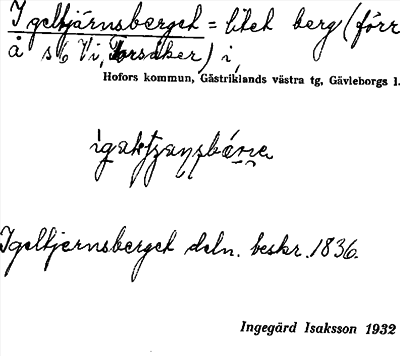 Igeltjärnsberget = litet berg (förr
å s/o Vi, Torsåker) i,
Hofors kommun, Gästriklands västra tg, Gävleborgs l.
Igeltjernsberget deln. beskr. 1836.
Ingegärd Isaksson 1932